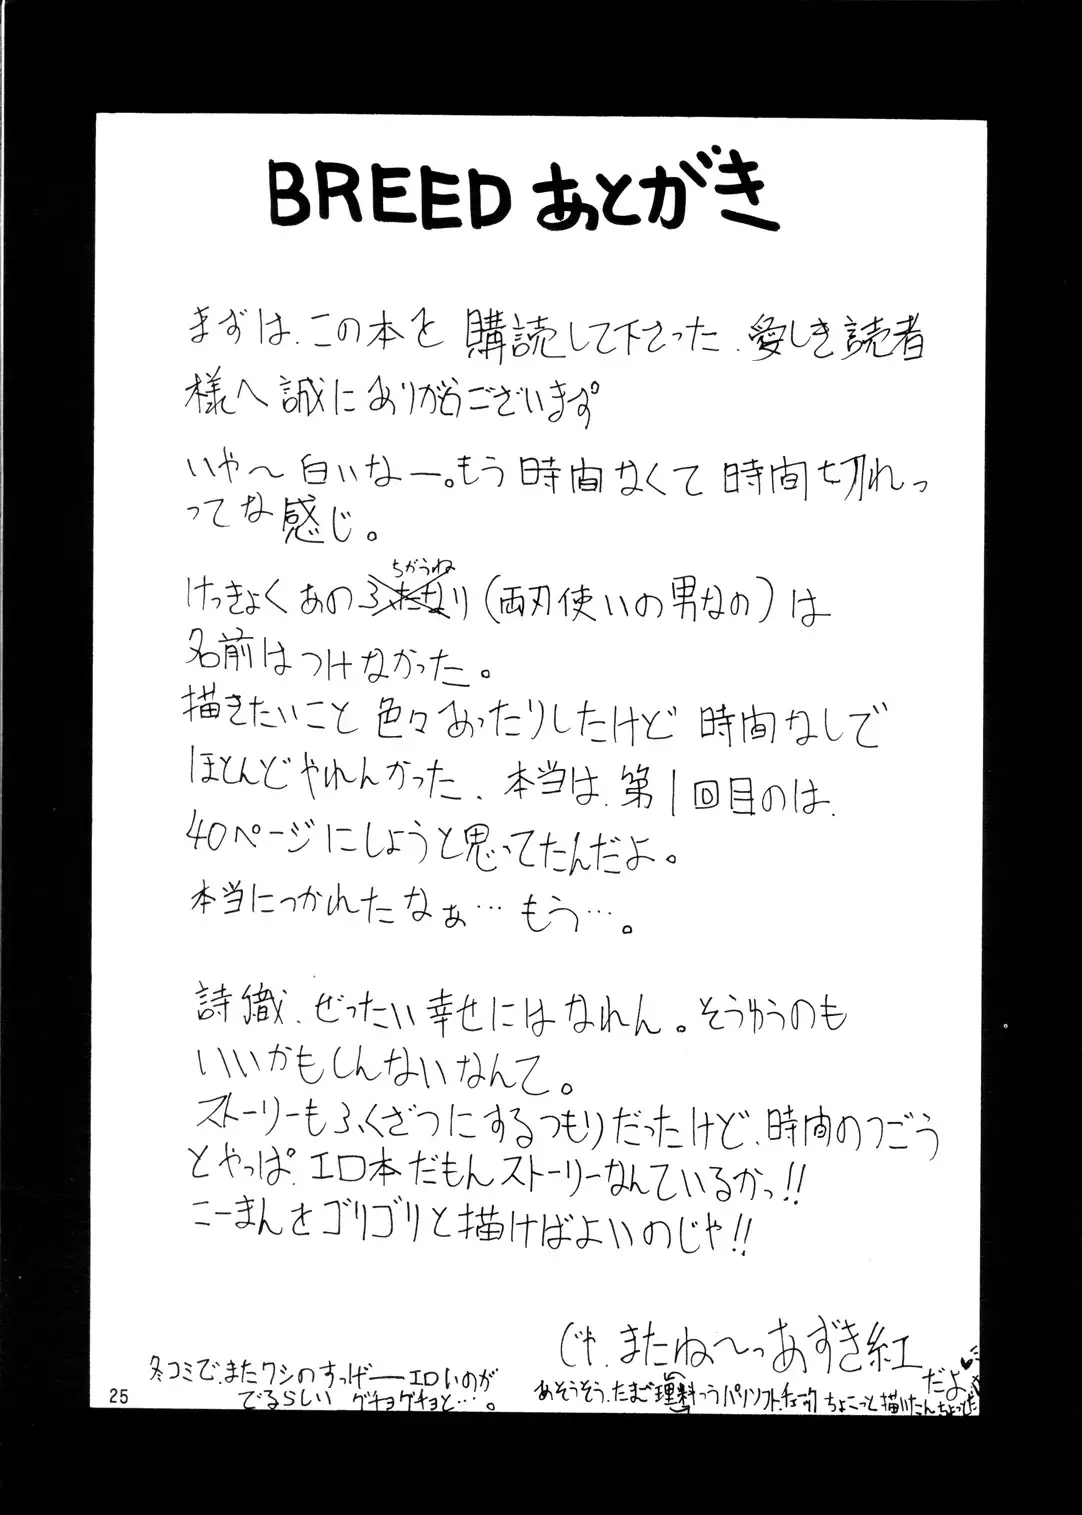 BREED あとがき
まずは、この本を購読して下さった、愛しき読者
様へ誠にありがとうございます。
いや〜白いなー。もう時間なくて時間切れっ
ってな感じ。
ちがうね
けっきょくあのふたなり(両刃使いの男なの)は
名前はつけなかった。
描きたいこと色々あったりしたけど時間なしで
ほとんどやれんかった、本当は、第1回目のは、
40ページにしようと思ってたんだよ。
本当につかれたなぁ…もう…。
詩織、ぜったい幸せにはなれん。そうゆうのも
いいかもしんないなんて。
ストーリーもふくざつにするつもりだったけど、時間のつごう
とやっぱ、エロ本だもんストーリーなんているかっ!!
こーまんをゴリゴリと描けばよいのじゃ!!
じゃ、またね〜っあずき紅
だよ♥
冬コミで、またワシのすっげーエロいのが
でるらしい グチョグチョと…。
あそうそう、たまご理料っつうパソソフト、チェック ちょこっと描いたん
25